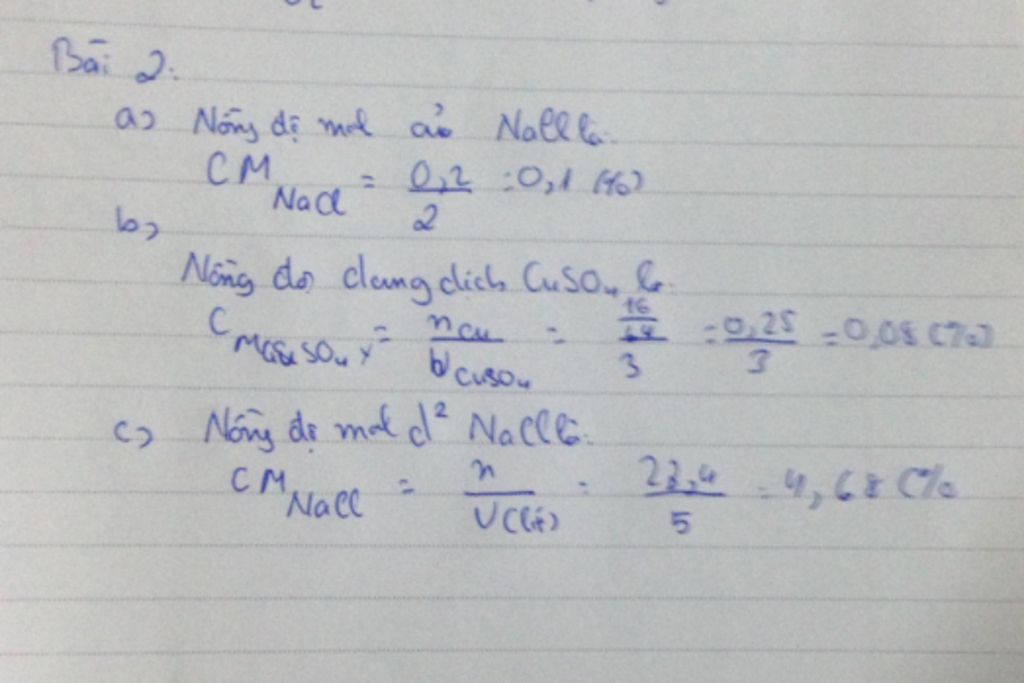 Bài 2:
a) Nồng độ mol của NaCl là:
CM NaCl = 0,2 / 2 = 0,1 (%)
b)
Nồng độ dung dịch CuSO₄ là:
= n Cu / V CuSO₄ = 16 / 64 / 3 = 0,25 / 3 = 0,08 (%)
c) Nồng độ mol d² NaCl là:
CM NaCl = n / V(lít) = 23,4 / 5 = 4,68 (%